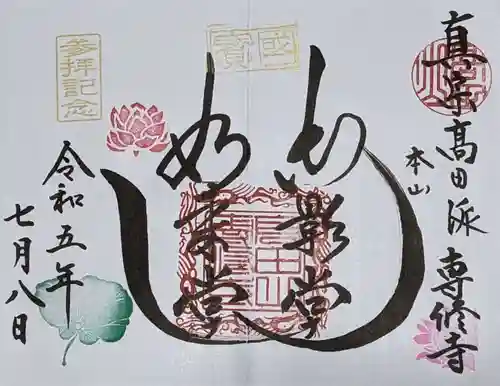 真宗高田派
本山
専修寺
国宝
御影堂
如来堂
参拝記念
令和五年
七月八日